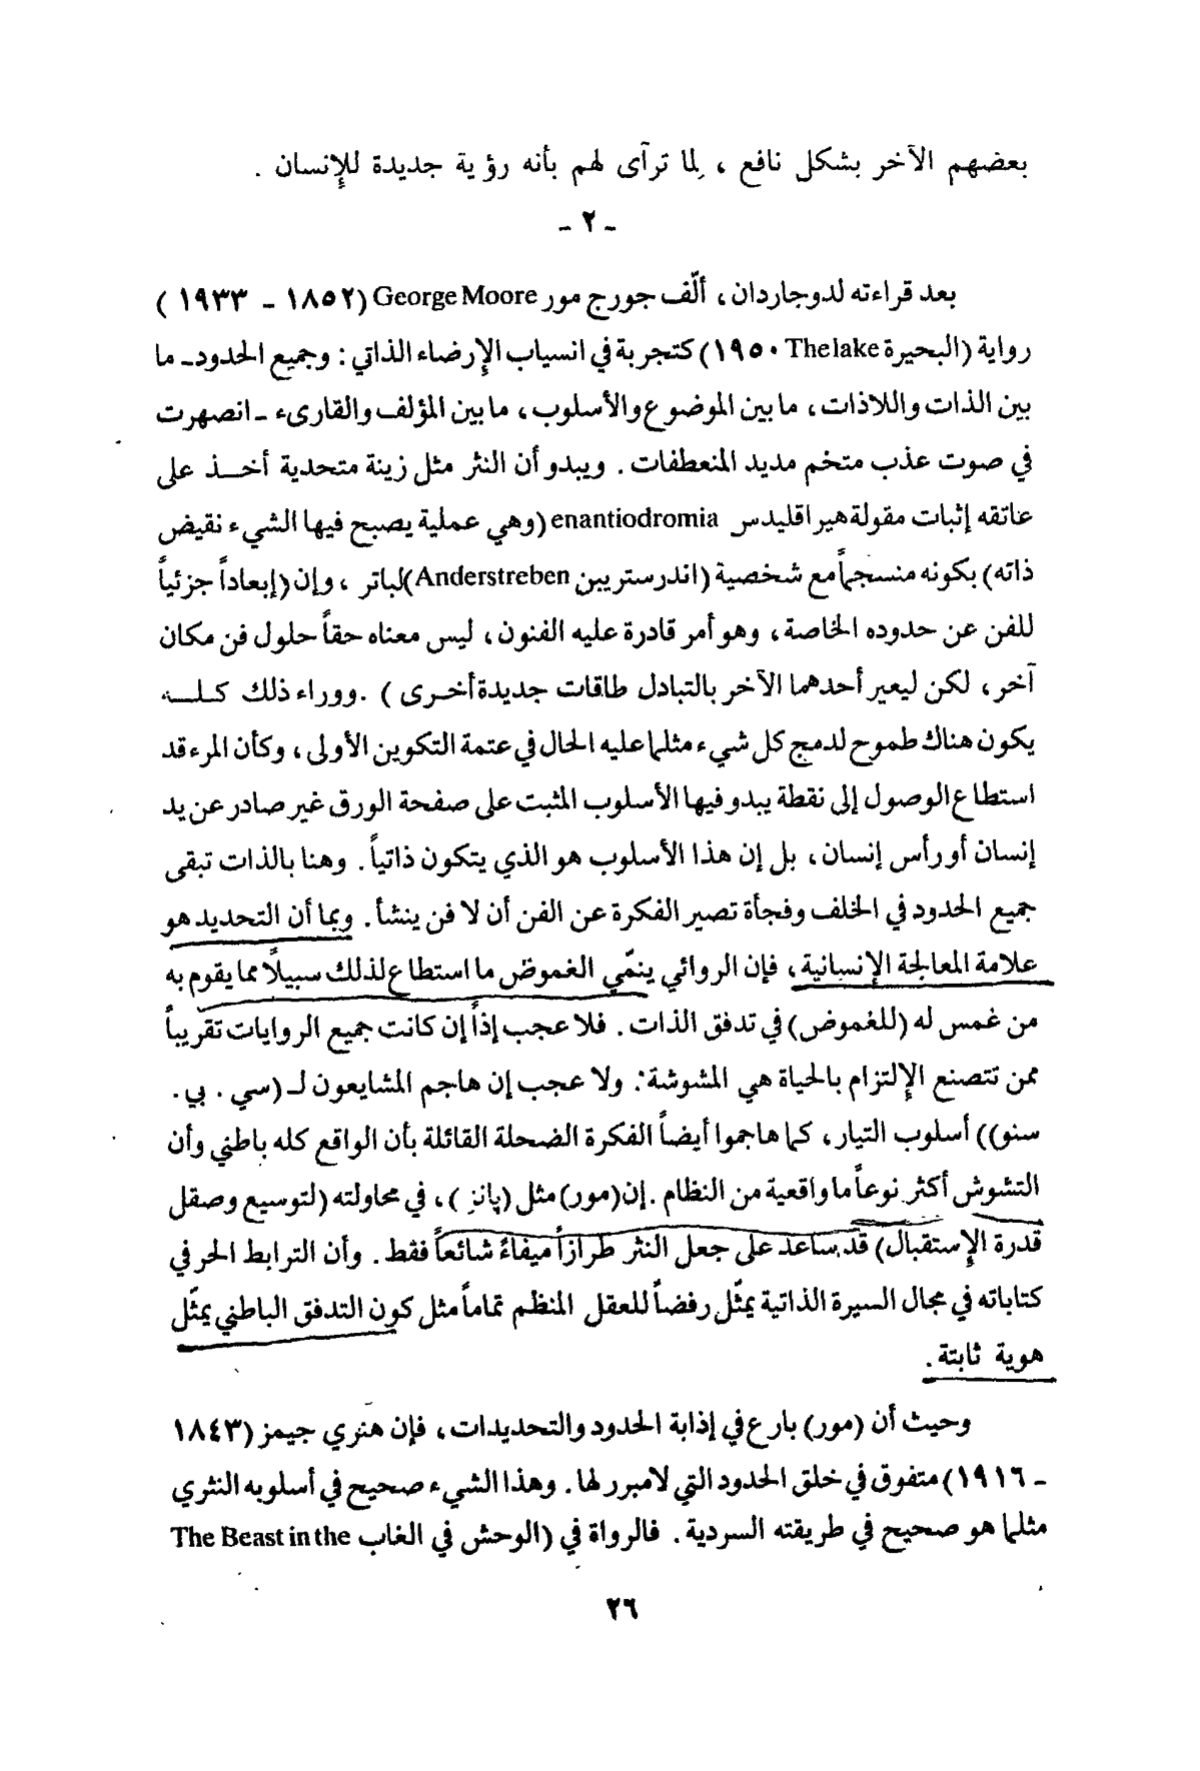 بعضهم الآخر بشكل نافع ، لِما ترآى لهم بأنه رؤية جديدة للإنسان .
ـ ٢ ـ
بعد قراءته لدوجاردان ، ألّف جورج مور George Moore (١٨٥٢ ـ ١٩٣٣ )
رواية (البحيرة The lake ١٩٥٠) كتجربة في انسياب الإرضاء الذاتي : وجميع الحدود ـ ما
بين الذات واللاذات ، ما بين الموضوع والأسلوب ، ما بين المؤلف والقارىء ـ انصهرت
في صوت عذب متخم مديد المنعطفات . ويبدو أن النثر مثل زينة متحدية أخـــذ على
عاتقه إثبات مقولة هيراقليدس enantiodromia (وهي عملية يصبح فيها الشيء نقيض
ذاته) بكونه منسجماً مع شخصية (اندرستريبن Anderstreben) لباتر ، وإن (إبعاداً جزئياً
للفن عن حدوده الخاصة ، وهو أمر قادرة عليه الفنون ، ليس معناه حقاً حلول فن مكان
آخر ، لكن ليعير أحدهما الآخر بالتبادل طاقات جديدة أخـرى ) . ووراء ذلك كـلـــه
يكون هناك طموح لدمج كل شيء مثلما عليه الحال في عتمة التكوين الأولى ، وكأن المرء قد
استطاع الوصول إلى نقطة يبدو فيها الأسلوب المثبت على صفحة الورق غير صادر عن يد
إنسان أو رأس إنسان ، بل إن هذا الأسلوب هو الذي يتكون ذاتياً . وهنا بالذات تبقى
جميع الحدود في الخلف وفجأة تصير الفكرة عن الفن أن لا فن ينشأ . وبما أن التحديد هو
علامة المعالجة الإنسانية ، فإن الروائي ينمّي الغموض ما استطاع لذلك سبيلاً مما يقوم به
من غمس له (للغموض) في تدفق الذات . فلا عجب إذاً إن كانت جميع الروايات تقريباً
ممن تتصنع الإلتزام بالحياة هي المشوشة . ولا عجب إن هاجم المشايعون لـ (سي . بي .
سنو)) أسلوب التيار ، كما هاجموا أيضاً الفكرة الضحلة القائلة بأن الواقع كله باطني وأن
التشوش أكثر نوعاً ما واقعية من النظام . إن (مور) مثل (پانز ) ، في محاولته (لتوسيع وصقل
قدرة الإستقبال) قد ساعد على جعل النثر طرازاً ميفاءً شائعاً فقط . وأن الترابط الحر في
كتاباته في مجال السيرة الذاتية يمثّل رفضاً للعقل المنظم تماماً مثل كون التدفق الباطني يمثّل
هوية ثابتة .
وحيث أن (مور) بارع في إذابة الحدود والتحديدات ، فإن هنري جيمز (١٨٤٣
ـ ١٩١٦) متفوق في خلق الحدود التي لا مبرر لها . وهذا الشيء صحيح في أسلوبه النثري
مثلما هو صحيح في طريقته السردية . فالرواة في (الوحش في الغاب The Beast in the
٢٦